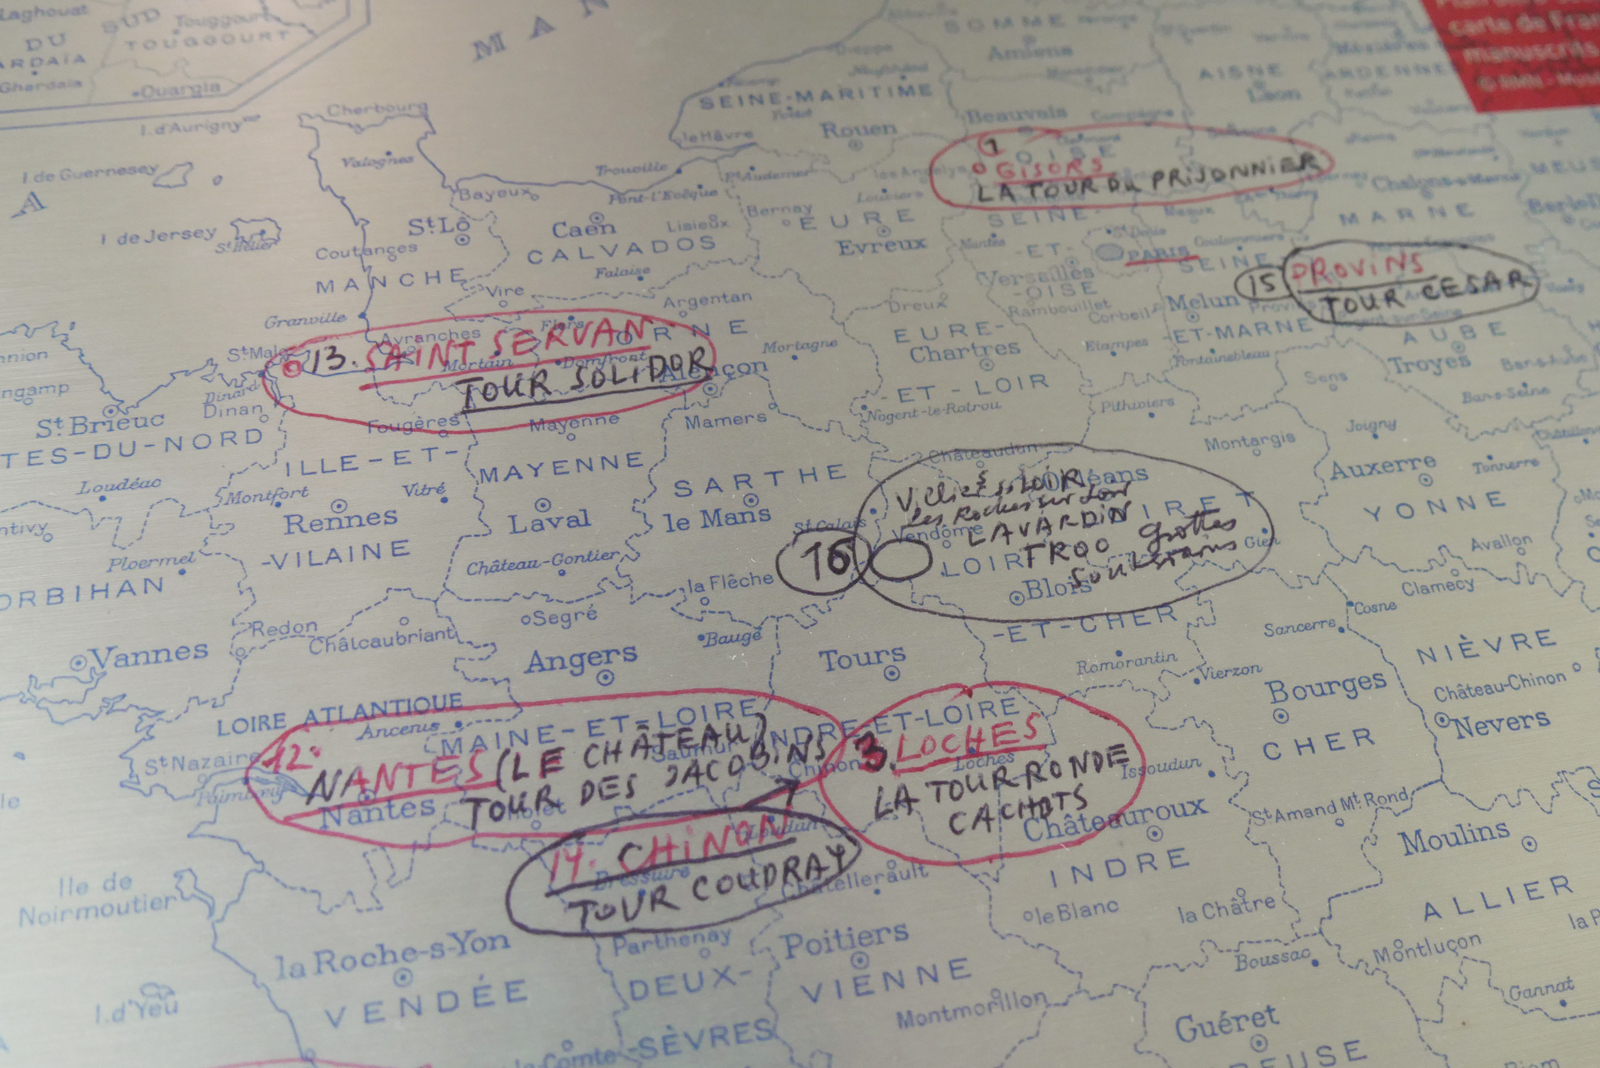 Laghouat
SUD
Touggourt
DU
TOUGGOURT
ARDAÏA
Ghardaia
Ouargla
M A N
SOMME
Amiens
Dieppe
AISNE
Laon
ARDENNE
carte de Fran
manuscrits
Cherbourg
I. d'Aurigny
SEINE-MARITIME
le Hâvre
Rouen
Beauvais
Valognes
I de Guernesey
Trouville
Pt Audemer
les Andelys
1
OISE
GISORS
LA TOUR DU PRISONNIER
MEUS
A
Bayeux
Pont-l'Evêque
Louviers
I de Jersey
St Helier
St Lô
Caen
Lisieux
Bernay
EURE
SEINE-
Châlons-s-Marne
MARNE
Coutances
CALVADOS
Evreux
Mantes
-ET-
St Denis
PARIS
Coulommiers
SEINE
MANCHE
Falaise
Versailles
-OISE
15
PROVINS
TOUR CESAR
Vire
Argentan
Dreux
Rambouillet
Corbeil
Melun
Provins
Granville
Avranches
Flers
ORNE
EURE-
Chartres
Etampes
-ET-MARNE
Fontainebleau
AUBE
Troyes
St Malo
13. SAINT SERVAN
Mortain
Domfront
Mortagne
TOUR SOLIDOR
Alençon
Dinard
Dinan
-ET-LOIR
Sens
Bar-s-Aube
Bar-s-Seine
ngamp
St Brieuc
Fougères
Mayenne
Mamers
Nogent-le-Rotrou
Pithiviers
Montargis
Joigny
TES-DU-NORD
ILLE-ET-
MAYENNE
SARTHE
Châteaudun
Orléans
Auxerre
Tonnerre
Loudéac
Montfort
Vitré
Rennes
Laval
le Mans
St Calais
LOIRET
YONNE
Les Roches sur Loir
Vendôme
LAVARDIN
TROO grottes
souterrains
Gien
16
ntivy
Ploermel
-VILAINE
Château-Gontier
la Flêche
LOIR
Blois
Avallon
Clamecy
ORBIHAN
Redon
Châteaubriant
Segré
Baugé
-ET-CHER
Cosne
Sancerre
Vannes
Angers
Tours
Romorantin
Vierzon
NIÈVRE
Bourges
Château-Chinon
Nevers
LOIRE ATLANTIQUE
Ancenis
MAINE-ET-LOIRE
INDRE-ET-LOIRE
CHER
St Nazaire
Paimbœuf
12.
NANTES (LE CHÂTEAU)
TOUR DES JACOBINS
Saumur
Chinon
3. LOCHES
Loches
LA TOUR RONDE
CACHOTS
Issoudun
Nantes
Cholet
Loudun
Châteauroux
St Amand Mt Rond
Moulins
14. CHINON
Bressuire
TOUR COUDRAY
Châtellerault
INDRE
Ile de
Noirmoutier
le Blanc
la Châtre
ALLIER
la Roche-s-Yon
Parthenay
Poitiers
Boussac
Montluçon
I. d'Yeu
VENDÉE
DEUX-
VIENNE
Montmorillon
Gannat
Guéret
-SÈVRES
EUSE